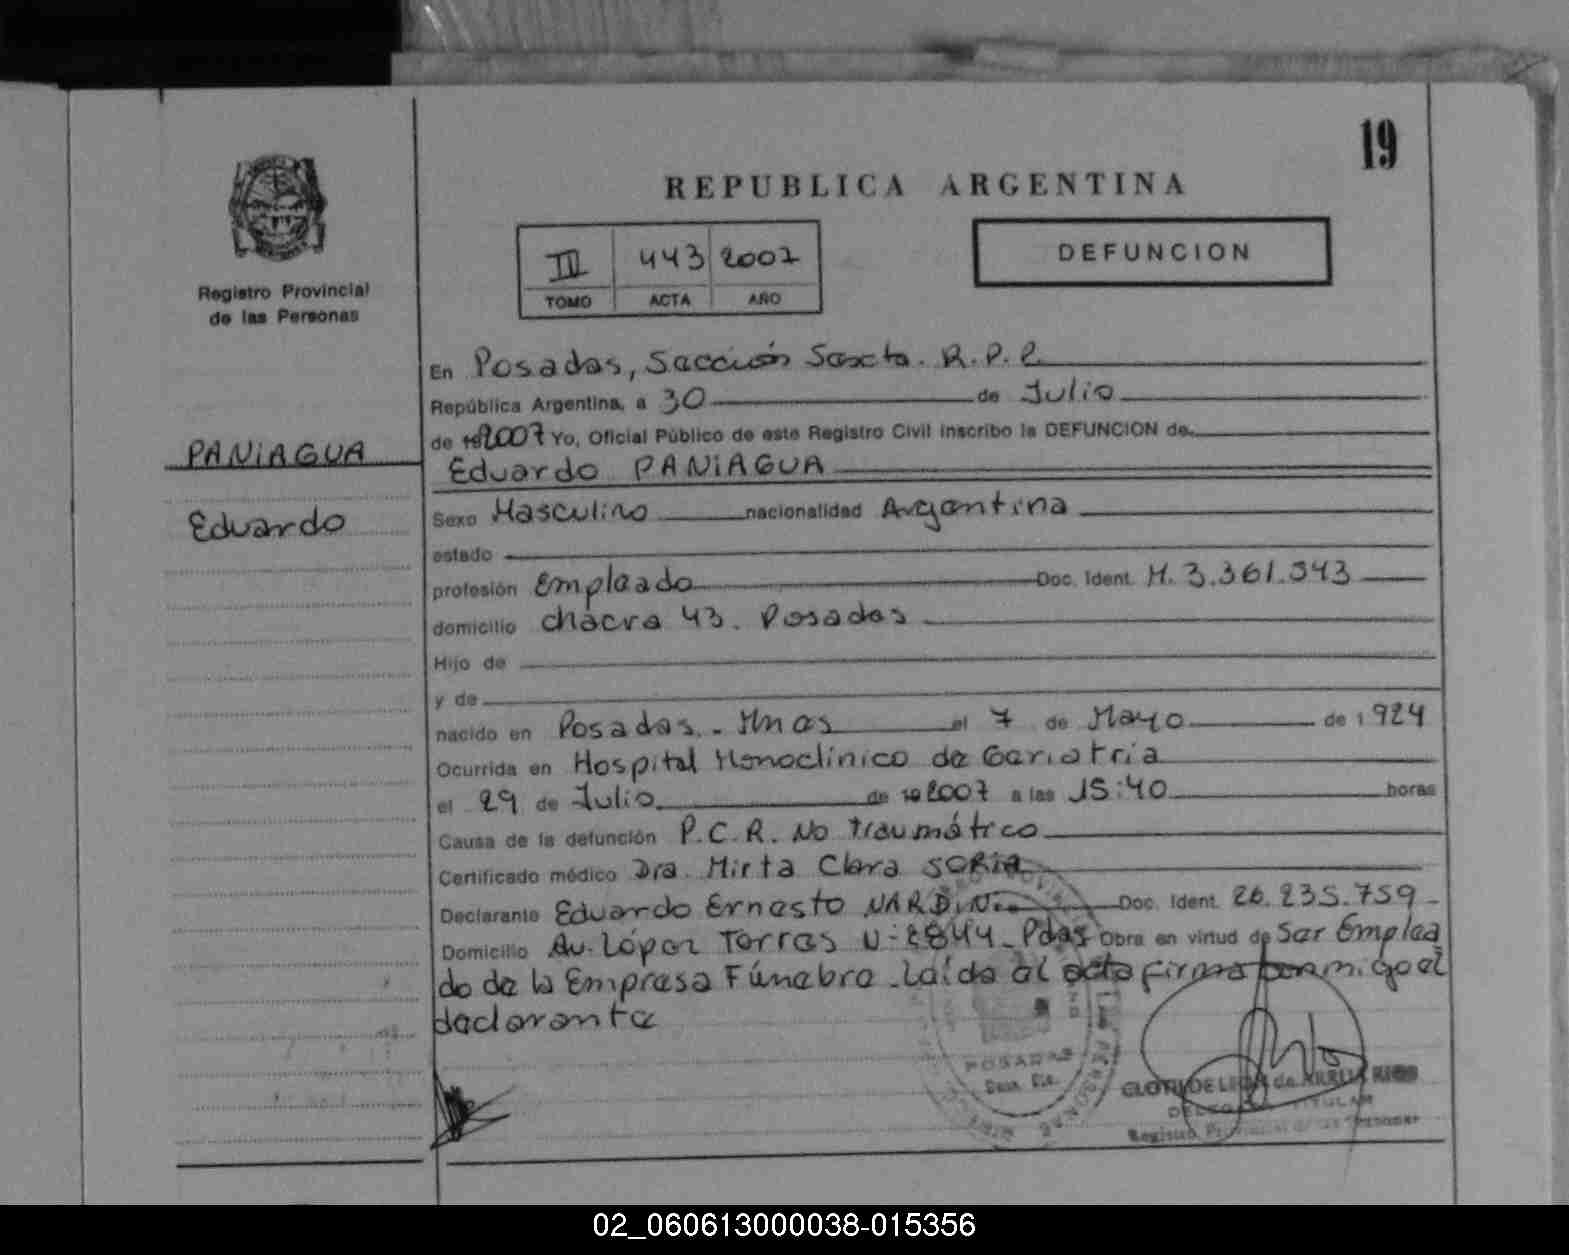 19
REPUBLICA ARGENTINA
III 443 2007
TOMO ACTA AÑO
DEFUNCION
Registro Provincial
de las Personas
PANIAGUA
Eduardo
En Posadas, Sección Sexta. R.P.P.
República Argentina, a 30 de Julio
de 19 2007 Yo, Oficial Público de este Registro Civil inscribo la DEFUNCION de
Eduardo PANIAGUA
Sexo Masculino nacionalidad Argentina
estado
profesión Empleado Doc. Ident. M. 3.361.543
domicilio chacra 43. Posadas
Hijo de
y de
nacido en Posadas. - Mnes el 7 de Mayo de 1924
Ocurrida en Hospital Monoclínico de Geriatría
el 29 de Julio de 19 2007 a las 15:40 horas
Causa de la defunción P.C.R. No traumático
Certificado médico Dra. Mirta Clara SORIA
Declarante Eduardo Ernesto NARDINI Doc. Ident. 26.235.759
Domicilio Av. López Torres N: 2844 - Pdas Obra en virtud de Ser Emplea
do de la Empresa Fúnebre - Leída el acta firma conmigo el
declarante
POSADAS
Secc. 6ta.
DELEGADA TITULAR
Registro Provincial de las Personas
02_060613000038-015356